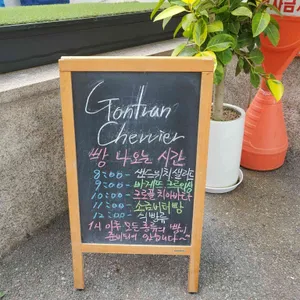 Gontran
Cherrier
빵 나오는 시간
8:00 - 샌드위치 샐러드
9:00 - 바게뜨 크루아상
10:00 - 크로플 치아바타
11:00 - 소금버터빵
12:00 - 식빵류
1시 이후 모든 종류의 빵이
준비되어 있습니다~